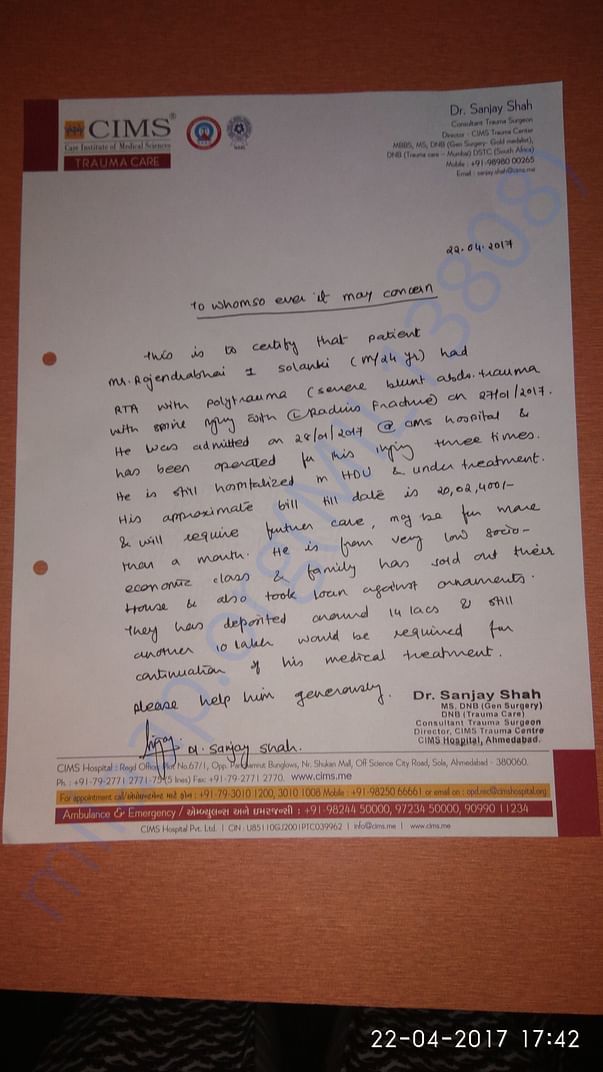 CIMS®
Care Institute of Medical Sciences
TRAUMA CARE
Dr. Sanjay Shah
Consultant Trauma Surgeon
Director - CIMS Trauma Center
MBBS, MS, DNB (Gen Surgery- Gold medalist),
DNB (Trauma care – Mumbai) DSTC (South Africa)
Mobile : +91-98980 00265
Email : sanjay.shah@cims.me
22.04.2017
To whomso ever it may concern
This is to certify that patient
Mr. Rajendrabhai I Solanki (M/24 yr) had
RTA with polytrauma (severe blunt abdo. trauma
with spine injury with (L) Radius Fracture) on 27/01/2017.
He was admitted on 28/01/2017 @ CIMS hospital &
has been operated for this injury three times.
He is still hospitalized in HDU & under treatment.
His approximate bill till date is 20,02,400/-
& will require further care, may be for more
than a month. He is from very low socio-
economic class & family has sold out their
House & also took loan against ornaments.
They has deposited around 14 lacs & still
another 10 lakh would be required for
continuation of his medical treatment.
please help him generously.
Dr. Sanjay Shah.
Dr. Sanjay Shah
MS, DNB (Gen Surgery)
DNB (Trauma Care)
Consultant Trauma Surgeon
Director, CIMS Trauma Centre
CIMS Hospital, Ahmedabad.
CIMS Hospital : Regd Office: Plot No.67/1, Opp. Panchamrut Bunglows, Nr. Shukan Mall, Off Science City Road, Sola, Ahmedabad - 380060.
Ph. : +91-79-2771 2771-75 (5 lines) Fax: +91-79-2771 2770. www.cims.me
For appointment call/એપોઇન્ટમેન્ટ માટે ફોન : +91-79-3010 1200, 3010 1008 Mobile : +91-98250 66661 or email on : opd.rec@cimshospital.org
Ambulance & Emergency / એમ્બ્યુલન્સ અને ઇમરજન્સી : +91-98244 50000, 97234 50000, 90990 11234
CIMS Hospital Pvt. Ltd. | CIN : U85110GJ2001PTC039962 | info@cims.me | www.cims.me
22-04-2017 17:42